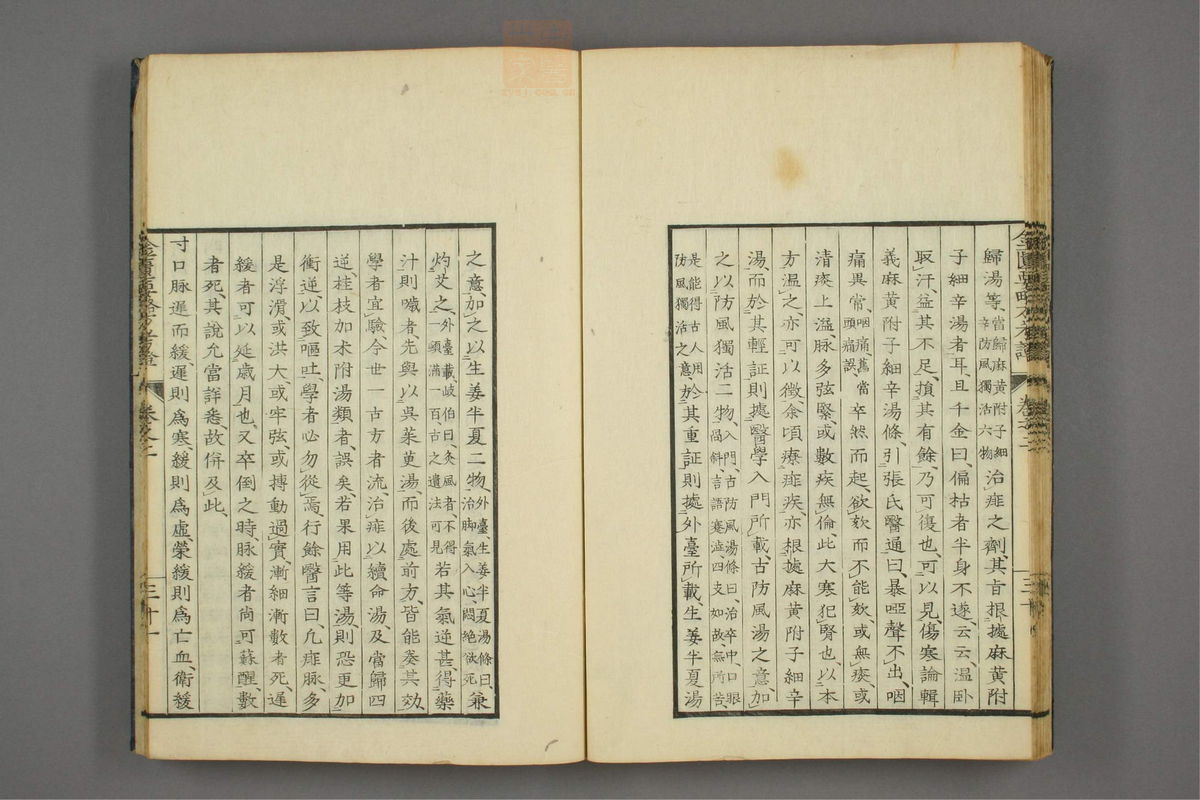 歸湯等、當歸麻黃附子細辛防風獨活六物治痱之劑、其旨根據麻黃附
子細辛湯者耳、且千金曰、偏枯者半身不遂、云云、溫臥
取汗、益其不足、損其有餘、乃可復也、可以見、傷寒論輯
義麻黃附子細辛湯條、引張氏醫通曰、暴啞聲不出、咽
痛異常、咽痛、舊當頭痛誤、卒然而起、欲欬而不能欬、或無痰、或
清痰上溢、脈多弦緊、或數疾無倫、此大寒犯腎也、以本
方溫之、亦可以徵、余頃療痱疾、亦根據麻黃附子細辛
湯、而於其輕証則據醫學入門所載、古防風湯之意、加
之以防風獨活二物、入門、古防風湯條曰、治卒中、口眼喎斜、言語蹇澁、四支如故、無所苦、
是能得古人用於防風獨活之意、於其重証則據外臺所載生姜半夏湯
之意、加之以生姜半夏二物、外臺、生姜半夏湯條曰、治脚氣入心、悶絕欲死、兼
灼艾之、外臺載、岐伯曰、灸風者、不得一頓滿一百、古之遺法可見若其氣逆甚、得藥
汁則嘔者、先與以吳茱萸湯、而後處前方、皆能奏其効、
學者宜驗、今世一古方者流、治痱以續命湯、及當歸四
逆、桂枝加朮附湯類者、誤矣、若果用此等湯、則恐更加
衝逆、以致嘔吐、學者必勿從焉、行餘醫言曰、凡痱脈、多
是浮滑、或洪大、或牢弦、或搏動過實、漸細漸數者死、遲
緩者可以延歲月也、又卒倒之時、脈緩者尚可蘇醒、數
者死、其說允當詳悉、故併及此、
寸口脈遲而緩、遲則爲寒、緩則爲虛、榮緩則爲亡血、衛緩
金匱要略方考證
卷之二
三十一